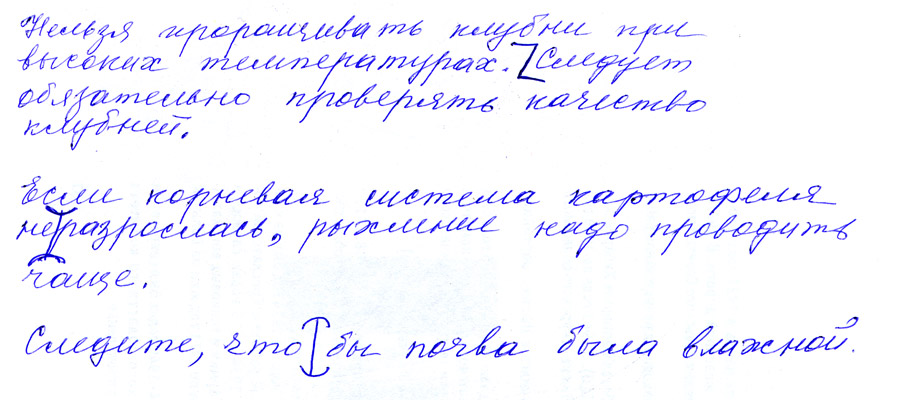 Нельзя проращивать клубни при
высоких температурах. Следует
обязательно проверять качество
клубней.
Если корневая система картофеля
неразрослась, рыхление надо проводить
чаще.
Следите, что бы почва была влажной.